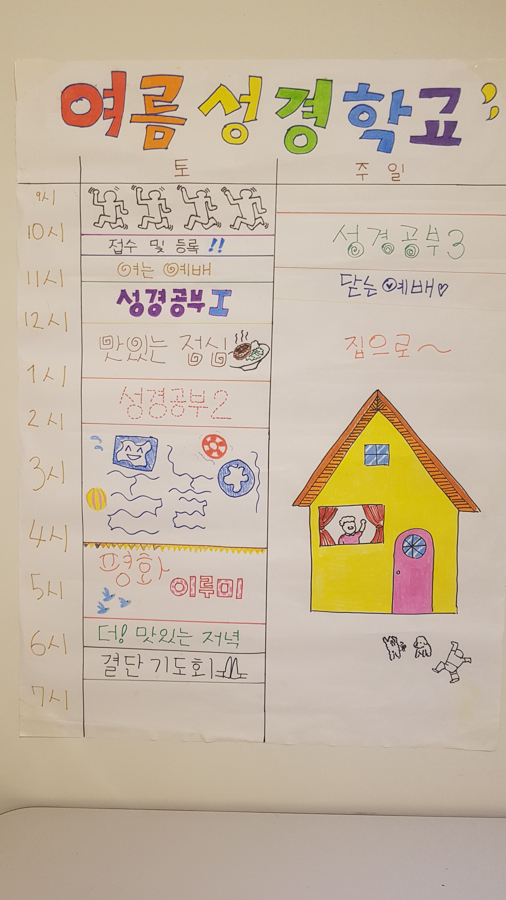 여름 성경학교
토
주일
9시
10시
11시
12시
1시
2시
3시
4시
5시
6시
7시
접수 및 등록 !!
여는 예배
성경공부 I
맛있는 점심
성경공부2
물놀이
평화
이루미
더! 맛있는 저녁
결단 기도회
성경공부3
닫는 예배♡
집으로~